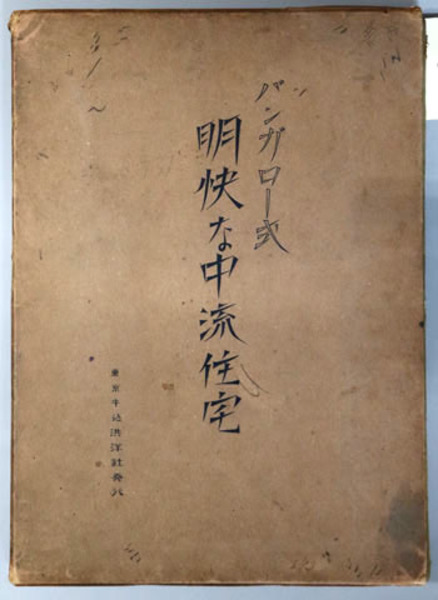 バンガロー式
明快な中流住宅
東京牛込洪洋社発兌